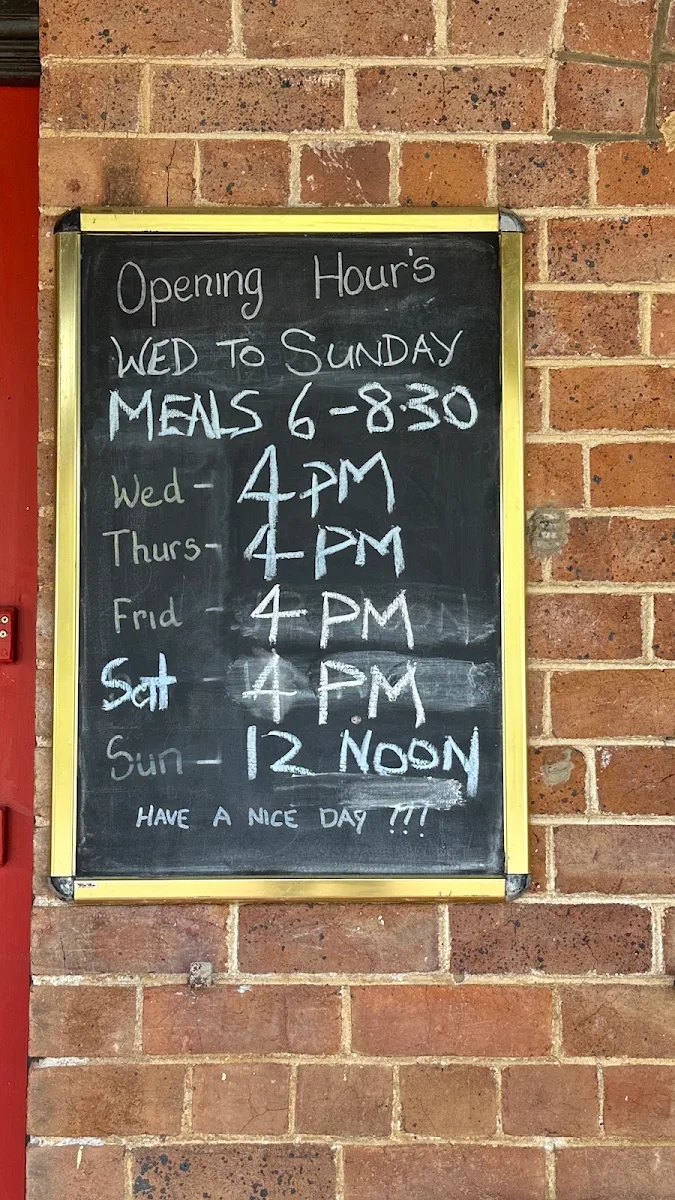 Opening Hour's
WED TO SUNDAY
MEALS 6-8.30
Wed - 4PM
Thurs- 4PM
Frid - 4PM
Sat - 4PM
Sun - 12 NOON
HAVE A NICE DAY !!!